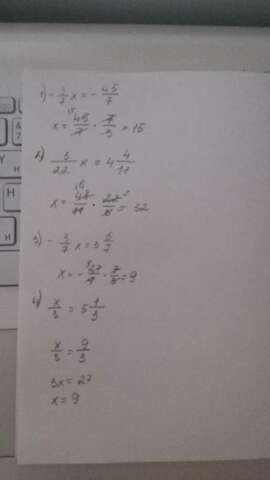 1) -3/7 x = - 45/7
x = 45/7 · 7/3 = 15
2) 3/22 x = 4 4/11
x = 48/11 · 22/3 = 32
3) - 3/7 x = 3 6/7
x = - 27/7 · 7/3 = 9
4) x/3 = 5 1/3
x/3 = 9/3
3x = 27
x = 9